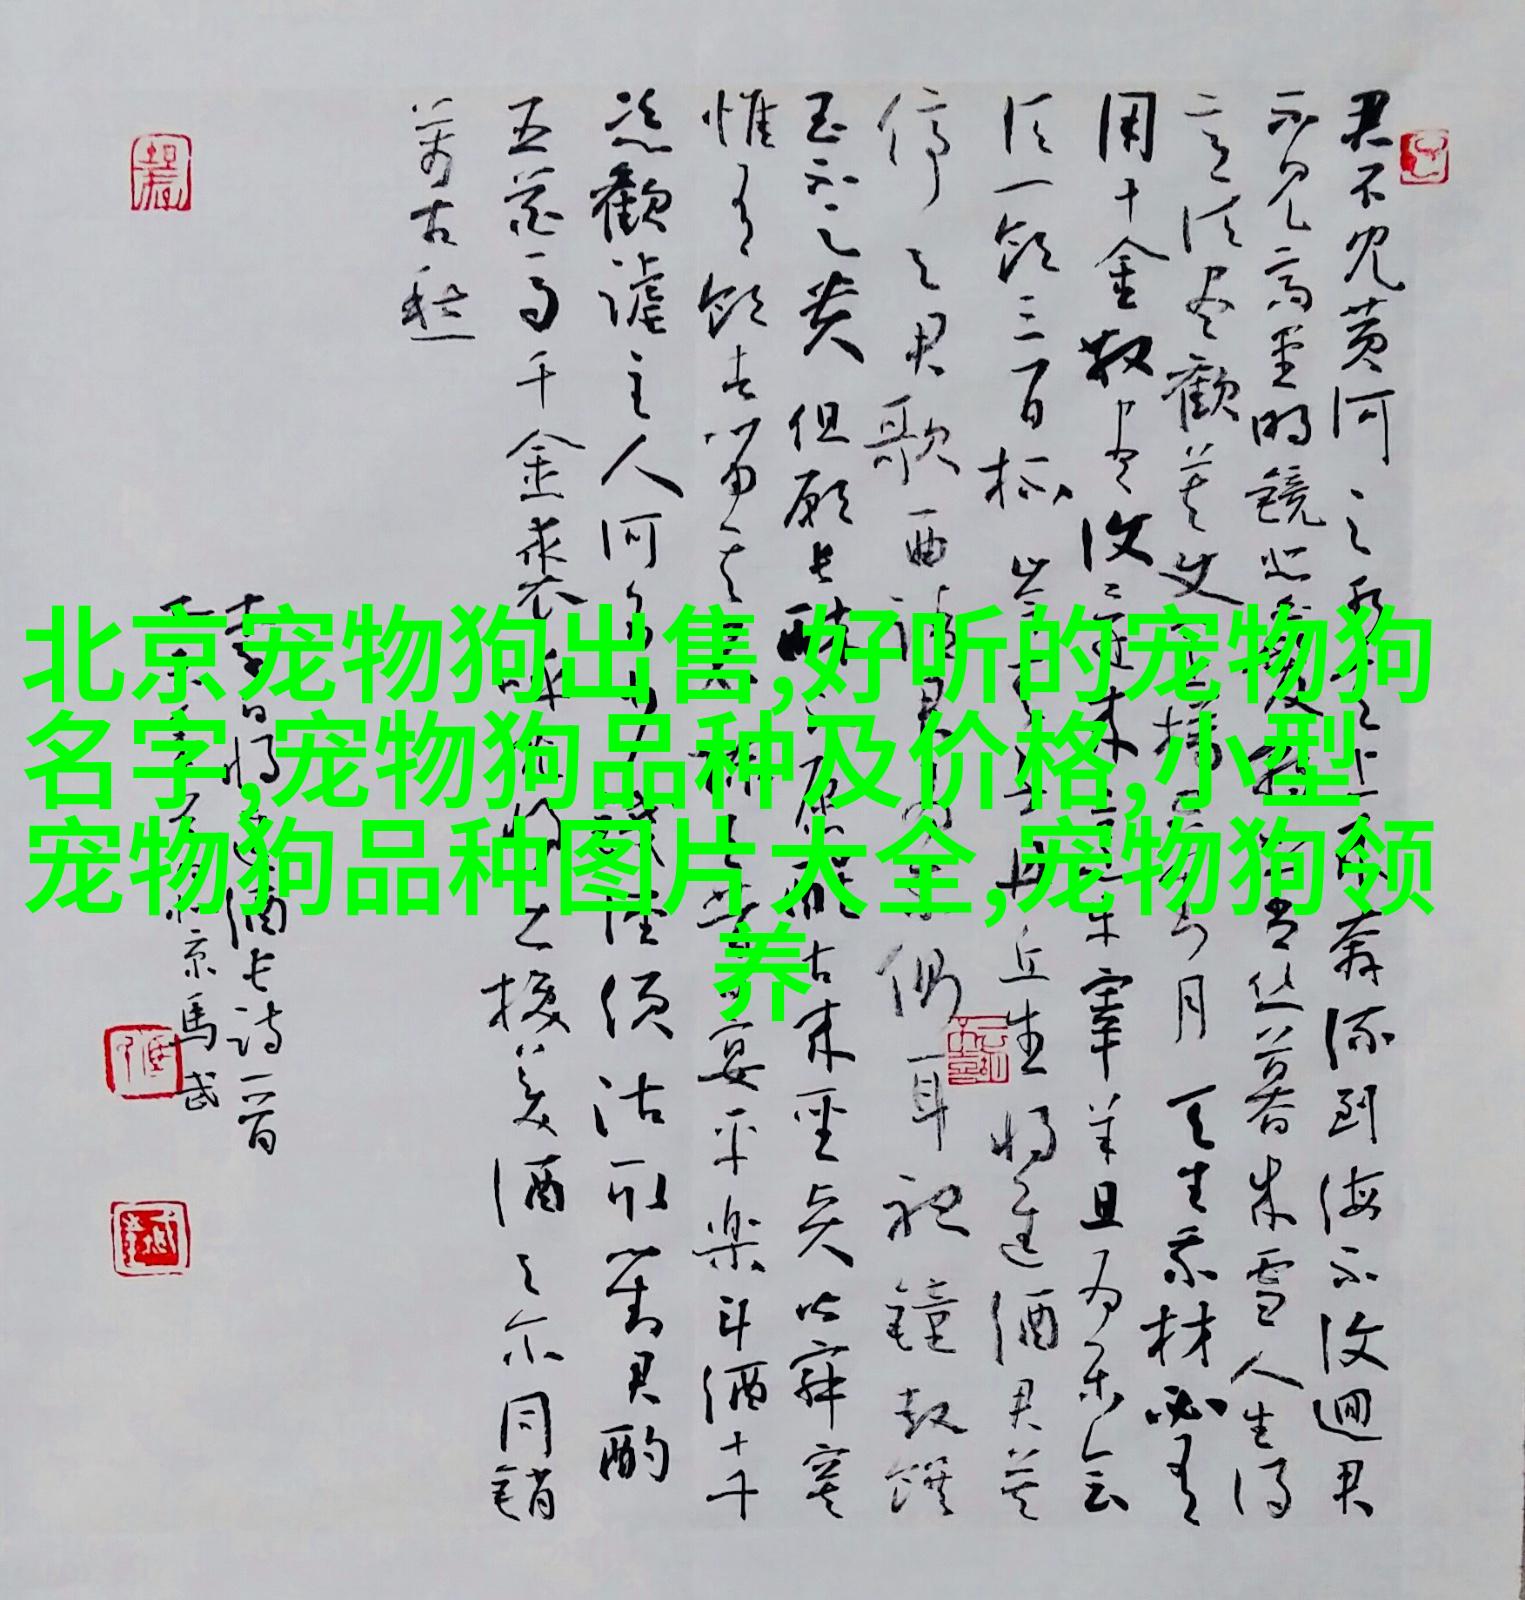 君不見黄河之水天上来奔流到海不復迴君
不見高堂明镜悲白髮朝如青丝暮成雪人生得
意須尽歡莫使金樽空对月天生我材必有
用千金散尽復還来烹羊宰羊且为乐会
須一飲三百杯岑夫子丹丘生将進酒君莫
停与君歌一曲请君为我倾耳聽鐘鼓馔
玉不足贵但願长醉不愿醒古来圣贤皆寂寞
惟有飲者留其名陈王昔时宴平楽斗酒十千
恣歡謔主人何为言少钱径须沽取对君酌
五花马千金裘呼儿将出换美酒与尔同销
萬古愁
李白将进酒长诗一首
京馬武
北京宠物狗出售,好听的宠物狗
名字,宠物狗品种及价格,小型
宠物狗品种图片大全,宠物狗领
养